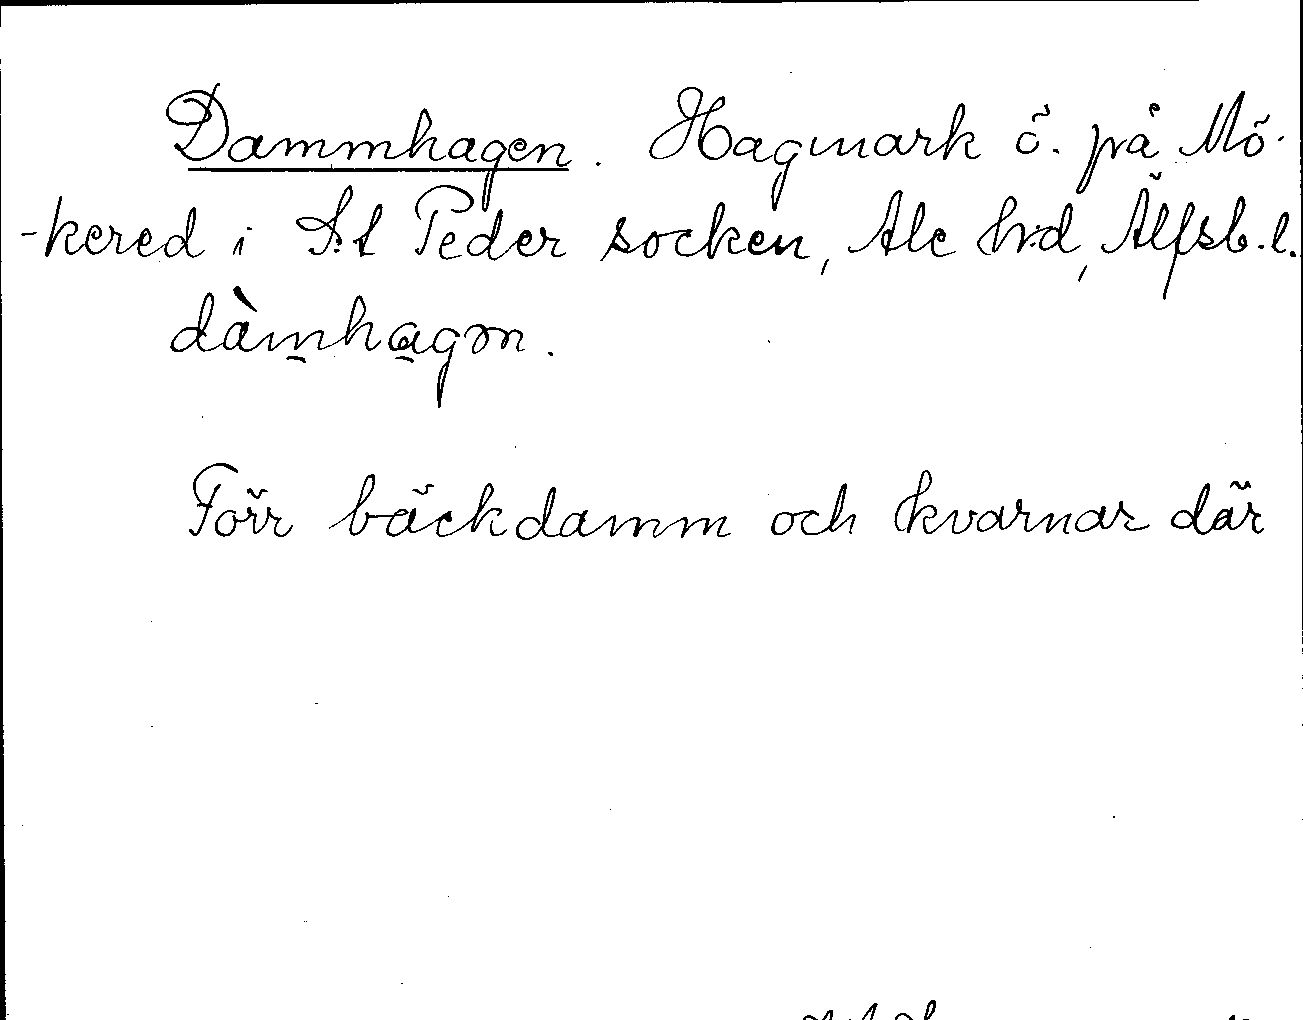 Dammhagen. Hagmark ö. på Mö-
-kered i S:t Peder socken, Ale hd, Älfsb. l.
dàm̲ha̲gən.
Förr bäckdamm och kvarnar där